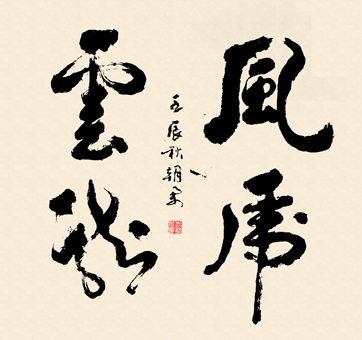 風虎
雲龍
壬辰秋朝